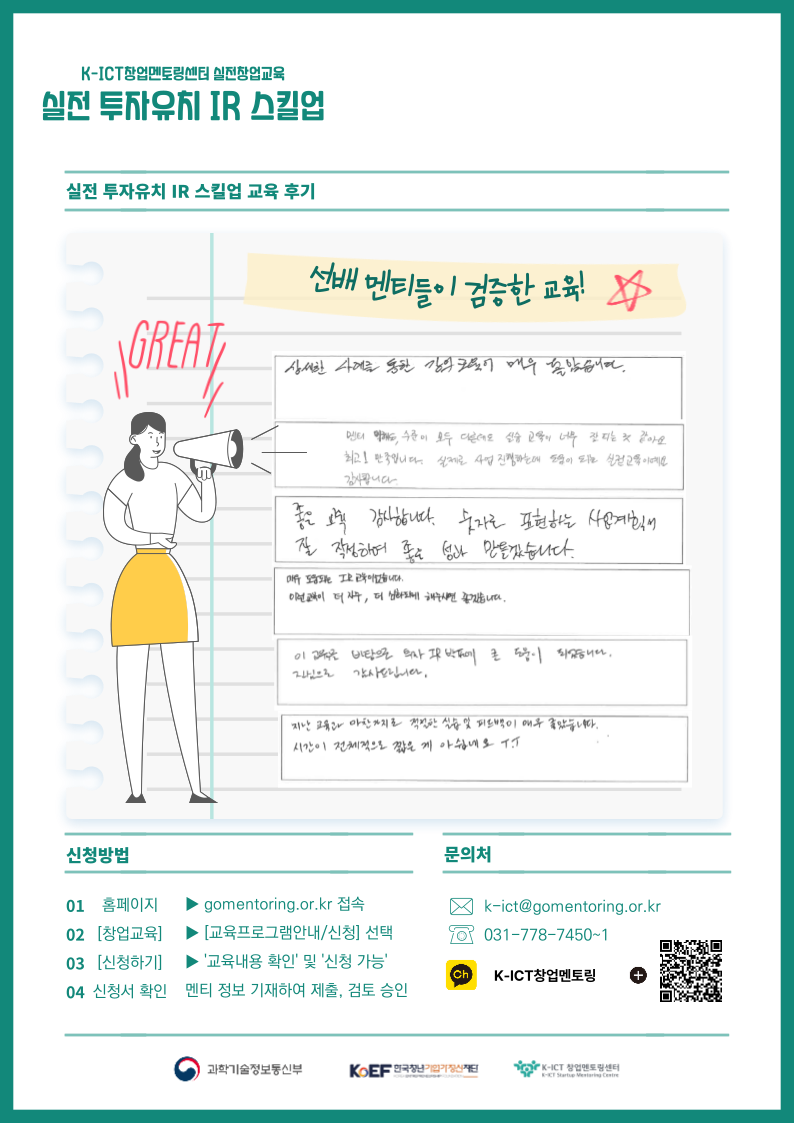 K-ICT창업멘토링센터 실전창업교육
실전 투자유치 IR 스킬업
실전 투자유치 IR 스킬업 교육 후기
선배 멘티들이 검증한 교육!
GREAT
상세한 사례를 통한 강의 교육이 매우 좋았습니다.
멘티 수준이 모두 다른데도 실습 교육이 너무 잘 되는 것 같아요
최고! 만족입니다. 실제로 사업 진행하는데 도움이 되는 실전교육이에요
감사합니다.
좋은 교육 감사합니다. 숫자로 표현하는 사업계획서
잘 작성하여 좋은 성과 만들겠습니다.
매우 도움되는 IR 교육이었습니다.
이런교육이 더 자주, 더 심화되게 해주시면 좋겠습니다.
이 교육은 바탕으로 투자 IR 발표에 큰 도움이 되었습니다.
진심으로 감사드립니다.
지난 교육과 마찬가지로 적절한 실습 및 피드백이 매우 좋았습니다.
시간이 전체적으로 짧은 게 아쉽네요 ㅜㅜ
신청방법
01 홈페이지 ▶ gomentoring.or.kr 접속
02 [창업교육] ▶ [교육프로그램안내/신청] 선택
03 [신청하기] ▶ '교육내용 확인' 및 '신청 가능'
04 신청서 확인 멘티 정보 기재하여 제출, 검토 승인
문의처
k-ict@gomentoring.or.kr
031-778-7450~1
Ch K-ICT창업멘토링
과학기술정보통신부
KoEF 한국청년기업가정신재단
K-ICT 창업멘토링센터
K-ICT Startup Mentoring Centre